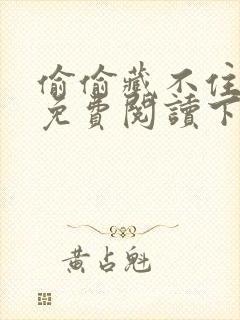 偷偷藏不住
免費閱讀下
黃占魁